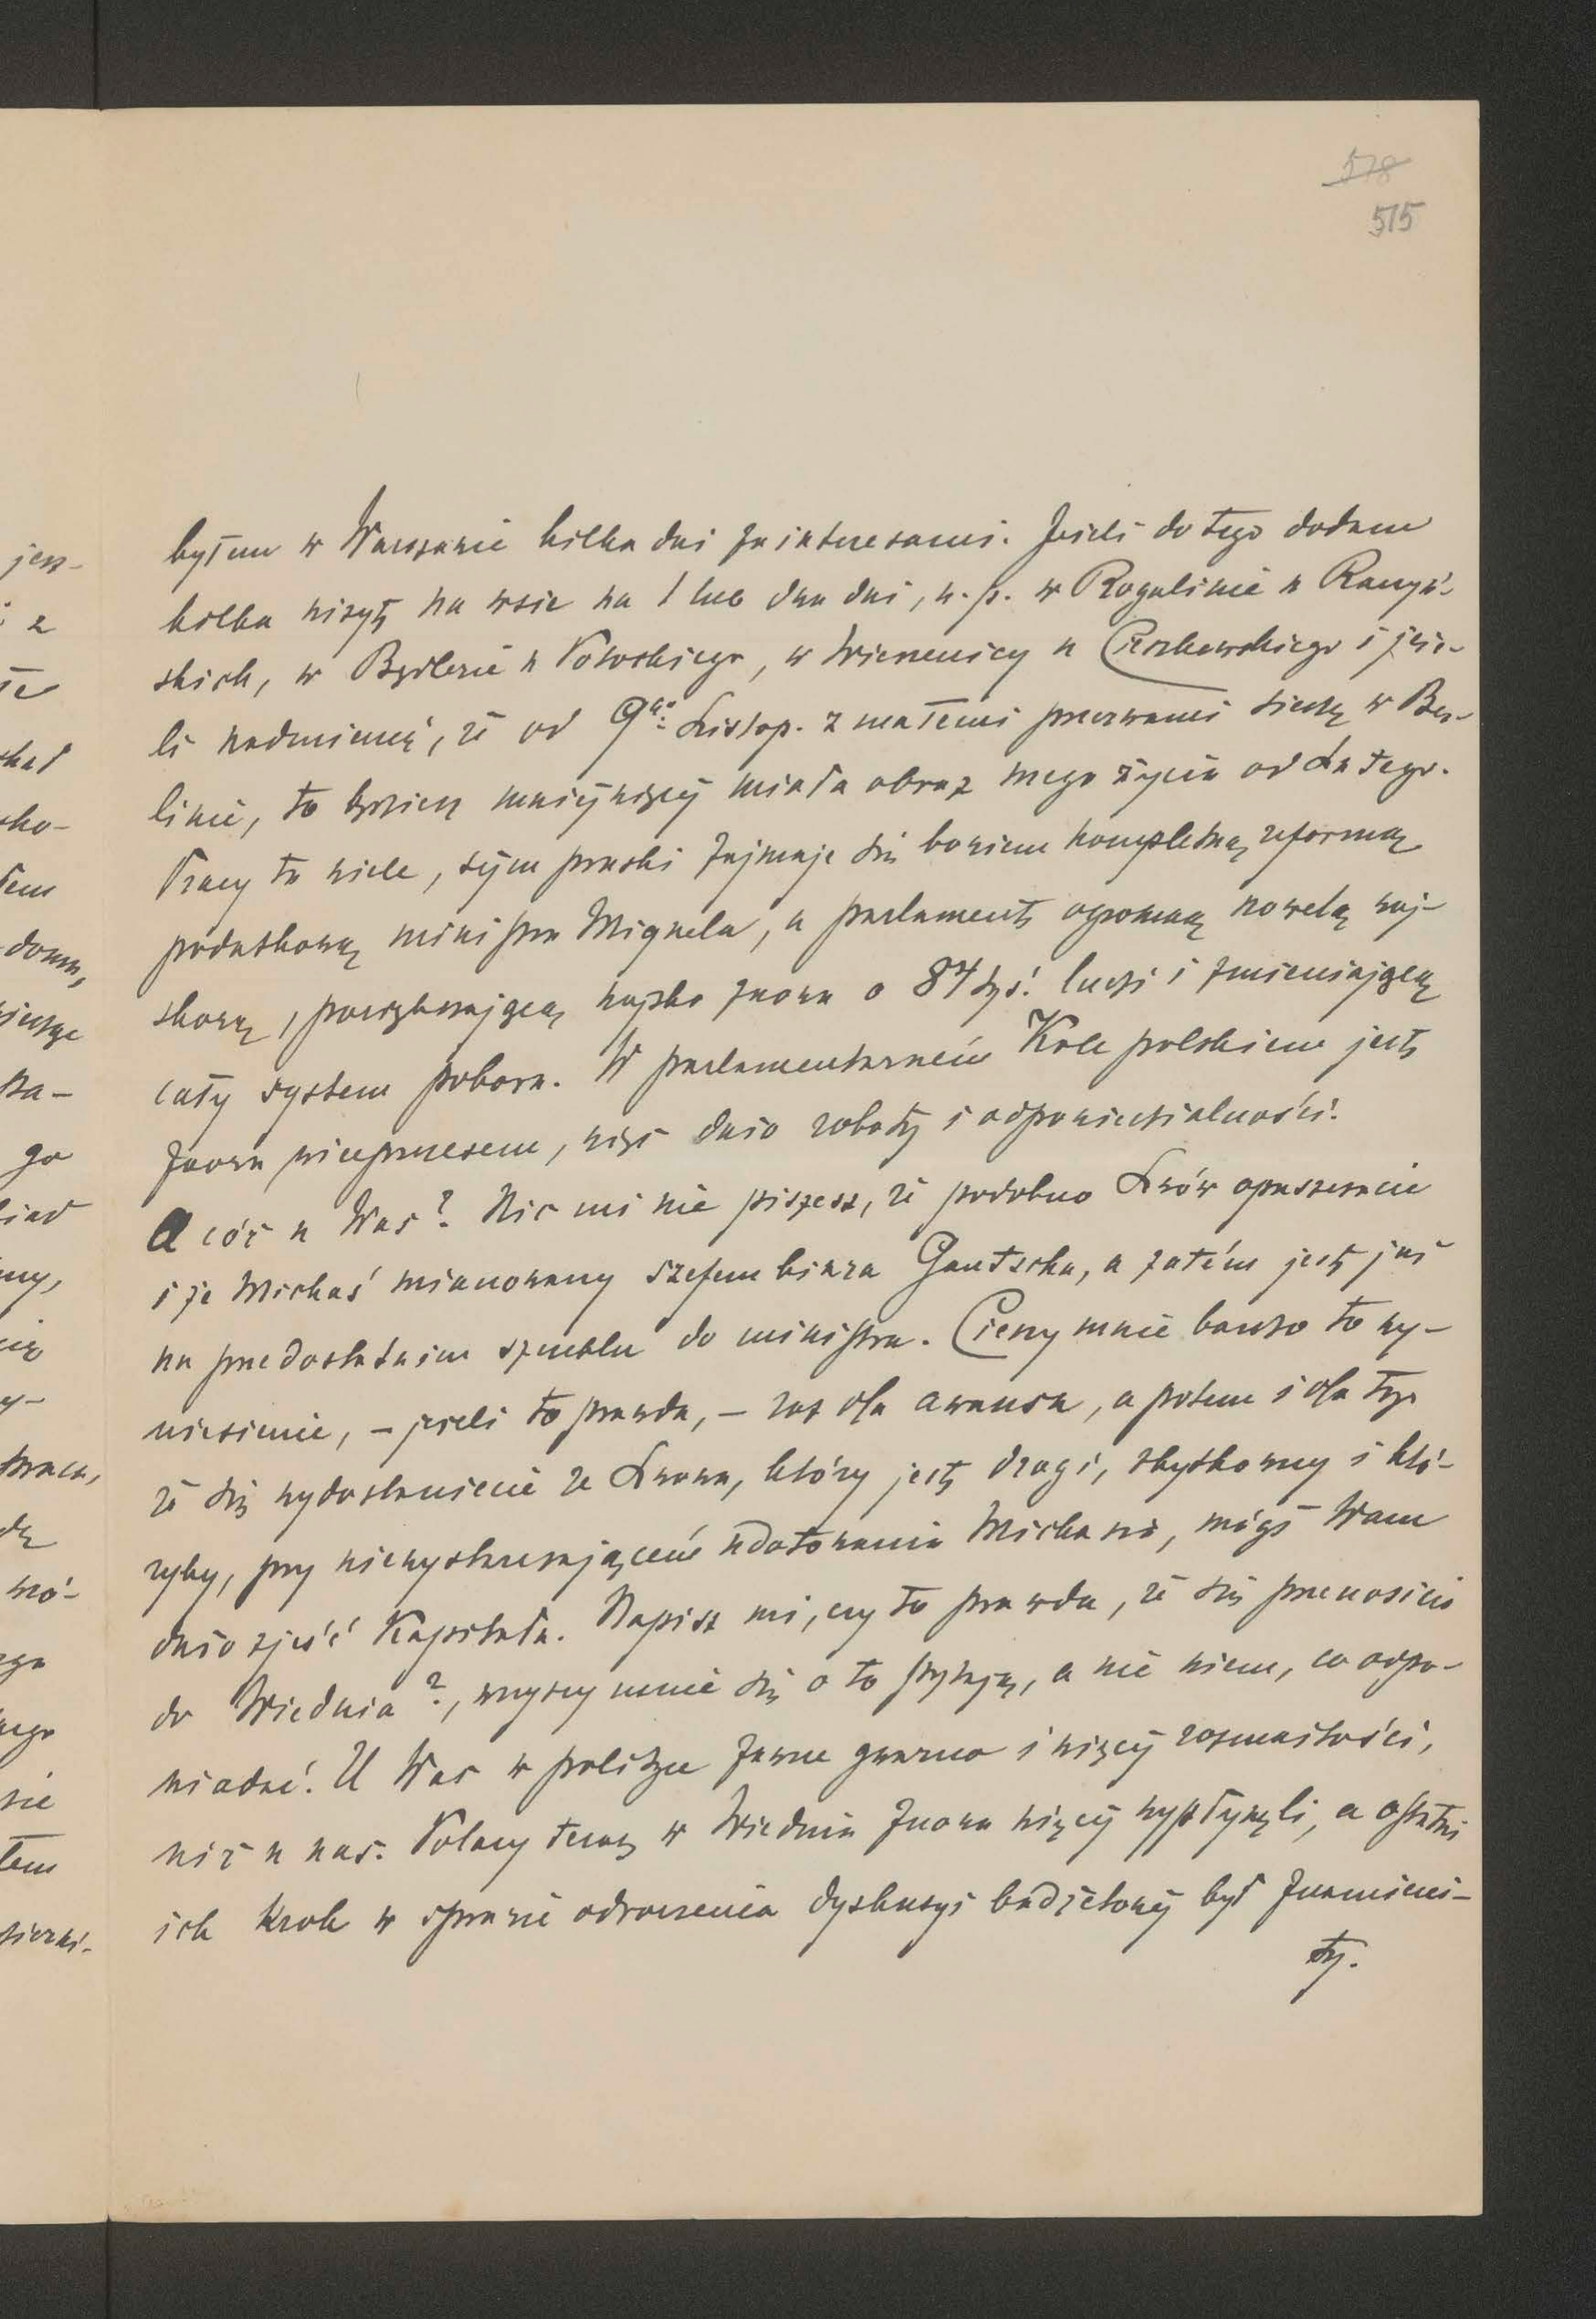 578
515
byłem w Warszawie kilka dni za interesami. Jeżeli do tego dodam
kilka wizyt na wsie na 1 lub dwa dni, n.p. w Rogalinie u Raczyń-
skich, w Będlewie u Potockiego, w Wierzenicy u Cieszkowskiego i jeże-
li nadmienię, że od 9go Listop. z małemi przerwami siedzę w Ber-
linie, to będziesz mniéj więcéj miała obraz mego życia od Lutego.
Pracy tu wiele, sejm pruski zajmuje się bowiem kompletną reformą
podatkową ministra Miquela, a parlament ogromną nowelą woj-
skową, powiększającą wojsko znowu o 84 tys. ludzi i zmieniającą
cały system poboru. W parlamentarném Kole polskiem jest
znowu wiceprezesem, więc dużo roboty i odpowiedzialności.
A cóż u Was? Nic mi nie piszesz, że podobno Lwów opuszczacie
i że Michaś mianowany szefem biura Gautscha, a zatém jest już
na przedostatnim szczeblu do ministra. Cieszy mnie bardzo to wy-
niesienie, – jeżeli to prawda, – raz dla awansu, a potem i dla tego
że się wydostaniecie ze Lwowa, który jest drogi, zbytkowny i któ-
ryby, przy niewystarczającém udotowaniu Michasia, mógł Wam
dużo zjeść Kapitału. Napisz mi, czy to prawda, że się przenosicie
do Wiednia?, wszyscy mnie się o to pytają, a nie wiem, co odpo-
wiadać. U Was w polityce zawsze gwarno i więcéj rozmaitości,
niż u nas. Polacy teraz w Wiedniu znowu więcéj wypłynęli, a ostatni
ich krok w sprawie odroczenia dyskusyi budżetowéj był znamieni-
ty.
jesz-
z
dom,
sza-
go
wró-
nie